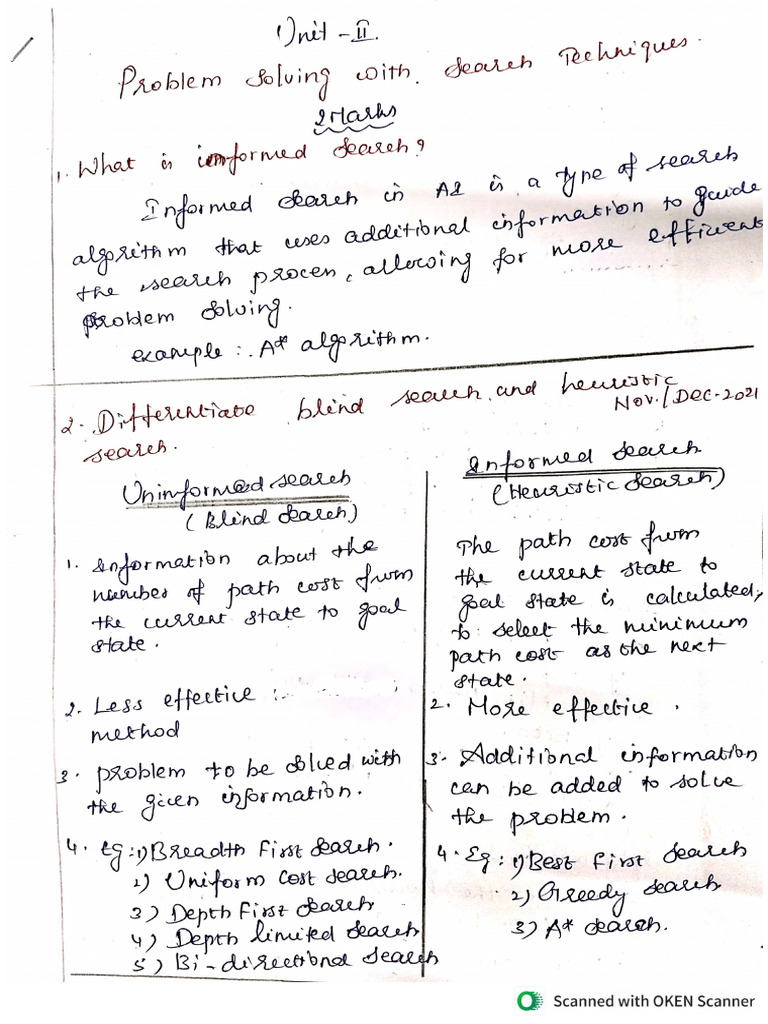 Unit - II.
Problem Solving with Search Techniques.
2 Marks
1. What is informed Search?
Informed Search in AI is a type of search
algorithm that uses additional information to guide
the search proces, allowing for more efficient
problem solving.
example :. A* algorithm.
2. Differentiate blind search and heuristic
Nov./Dec-2021
search.
Uninformed search
(Blind Search)
1. Information about the
number of path cost from
the current state to goal
state.
2. Less effective :.
method
3. problem to be solved with
the given information.
4. Eg: 1) Breadth First Search.
2) Uniform cost search.
3) Depth First Search
4) Depth limited Search
5) Bi-directional Search
Informed Search
(Heuristic Search)
The path cost from
the current state to
goal state is calculated,
to select the minimum
path cost as the next
state.
2. More effective.
3. Additional information
can be added to solve
the problem.
4. Eg: 1) Best First Search
2) Greedy search
3) A* search.
Scanned with OKEN Scanner